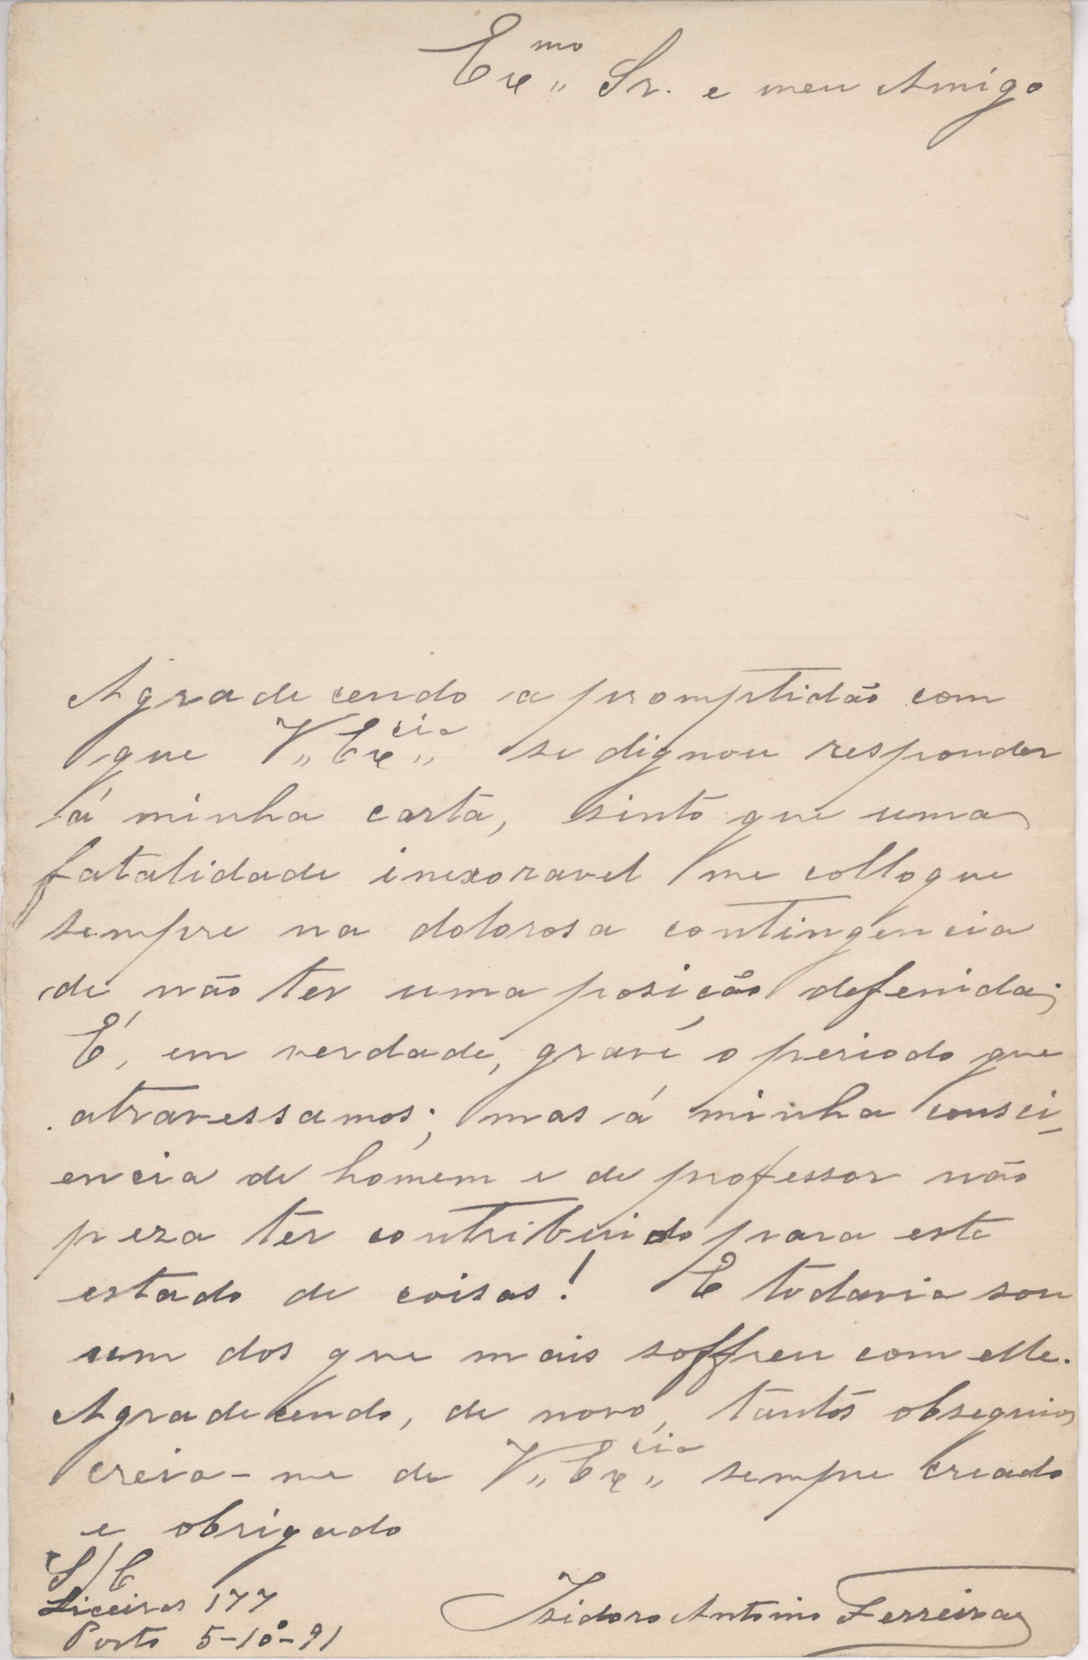 Ex.mo Sr. e meu Amigo
Agradecendo a promptidão com
que V.. Ex.cia se dignou responder
á minha carta, sinto que uma
fatalidade inexoravel me colloque
sempre na dolorosa contingencia
de não ter uma posição defenida;
É, em verdade, grave o periodo que
atravessamos; mas á minha consci-
encia de homem e de professor não
peza ter contribuido para este
estado de coisas! E todavia sou
um dos que mais soffreu com elle.
Agradecendo, de novo, tantos obsequios
creia-me de V.. Ex.cia sempre criado
e obrigado
S/C
Liceiras 177
Porto 5-10º-91
Isidoro Antonio Ferreira